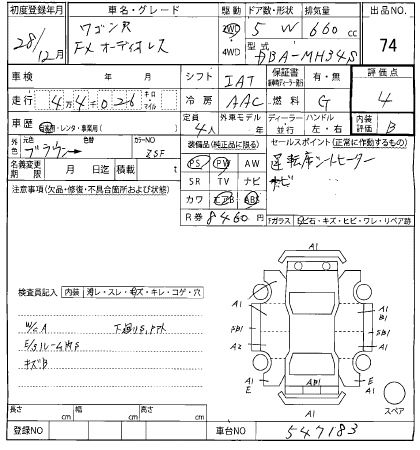 初度登録年月 車名・グレード 駆動 ドア数・形状 排気量 出品NO.
28/12月 ワゴンR 2WD 5 W 660cc 74
FXオーディオレス 4WD 型式 DBA-MH34S
車検 年 月 シフト IAT 保証書 有・無 評価点
走行 4万4千026 キロ マイル 冷房 AAC 燃料 G 4
車歴 自家用・レンタ・事業用( ) 定員 4人 外車モデル 年 ディーラー 並行 ハンドル 左・右 内装評価 B
外色 元色 ブラウン 色替 カラーNO ZSF 装備品(純正品に限る) セールスポイント(正常に作動するもの)
PS PW AW 運転席シートヒーター
名義変更期限 月 日 積載 t SR TV ナビ ナビ
注意事項(欠品・修復・不具合箇所および状態) カワ エアB ABS
R券 8460円 Fガラス 飛石・キズ・ヒビ・ワレ・リペア跡
A1
検査員記入 内装 汚レ・スレ・キズ・キレ・コゲ・穴
A1 A1
W/C A 下廻りS,
SB1 SB1
E/Sルーム内S A2 A1
キズB
A1 E AB1 E A1
A1 スペア
長さ cm 幅 cm 高さ cm
登録NO 車台NO 547183